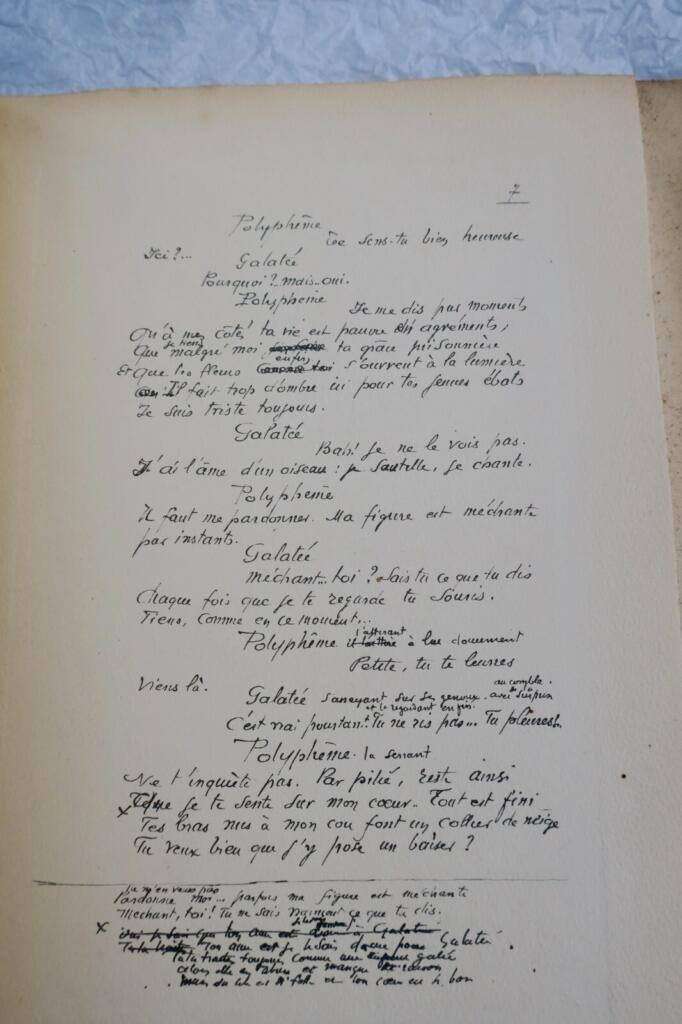 7
Polyphême
Te sens-tu bien heureuse
Ici?...
Galatée
Pourquoi?..mais..oui.
Polypheme
Je me dis par moments
Qu'à mes côtés ta vie est pauvre en agréments,
je tiens
Que malgré moi ta grâce prisonnière
enfin
Et que les fleurs s'ouvrent à la lumière
Il fait trop d'ombre ici pour tes jeunes ébats
Je suis triste toujours.
Galatée
Bah! Je ne le vois pas.
J'ai l'âme d'un oiseau : je sautille, je chante.
Polypheme
Il faut me pardonner. Ma figure est méchante
par instants.
Galatée
Méchant... toi? Sais tu ce que tu dis
Chaque fois que je te regarde tu souris.
Tiens, comme en ce moment...
l'attirant
Polyphême à lui doucement
Petite, tu te leurres
Viens là.
au comble
Galatée s'asseyant sur ses genoux. avec surprise
et le regardant enfin.
C'est vrai pourtant! Tu ne ris pas... Tu pleures!..
Polyphême. la serrant
Ne t'inquiète pas. Par pitié, reste ainsi
Que je te sente sur mon cœur.. Tout est fini
x Tes bras nus à mon cou font un collier de neige
Tu veux bien que j'y pose un baiser?
Tu m'en veux pas
Pardonne moi... parfois ma figure est méchante
Mechant, toi! Tu ne sais vraiment ce que tu dis.
x
Ton âme est je le sais douce pour Galatée.
Tu la traites toujours comme une enfant gatée